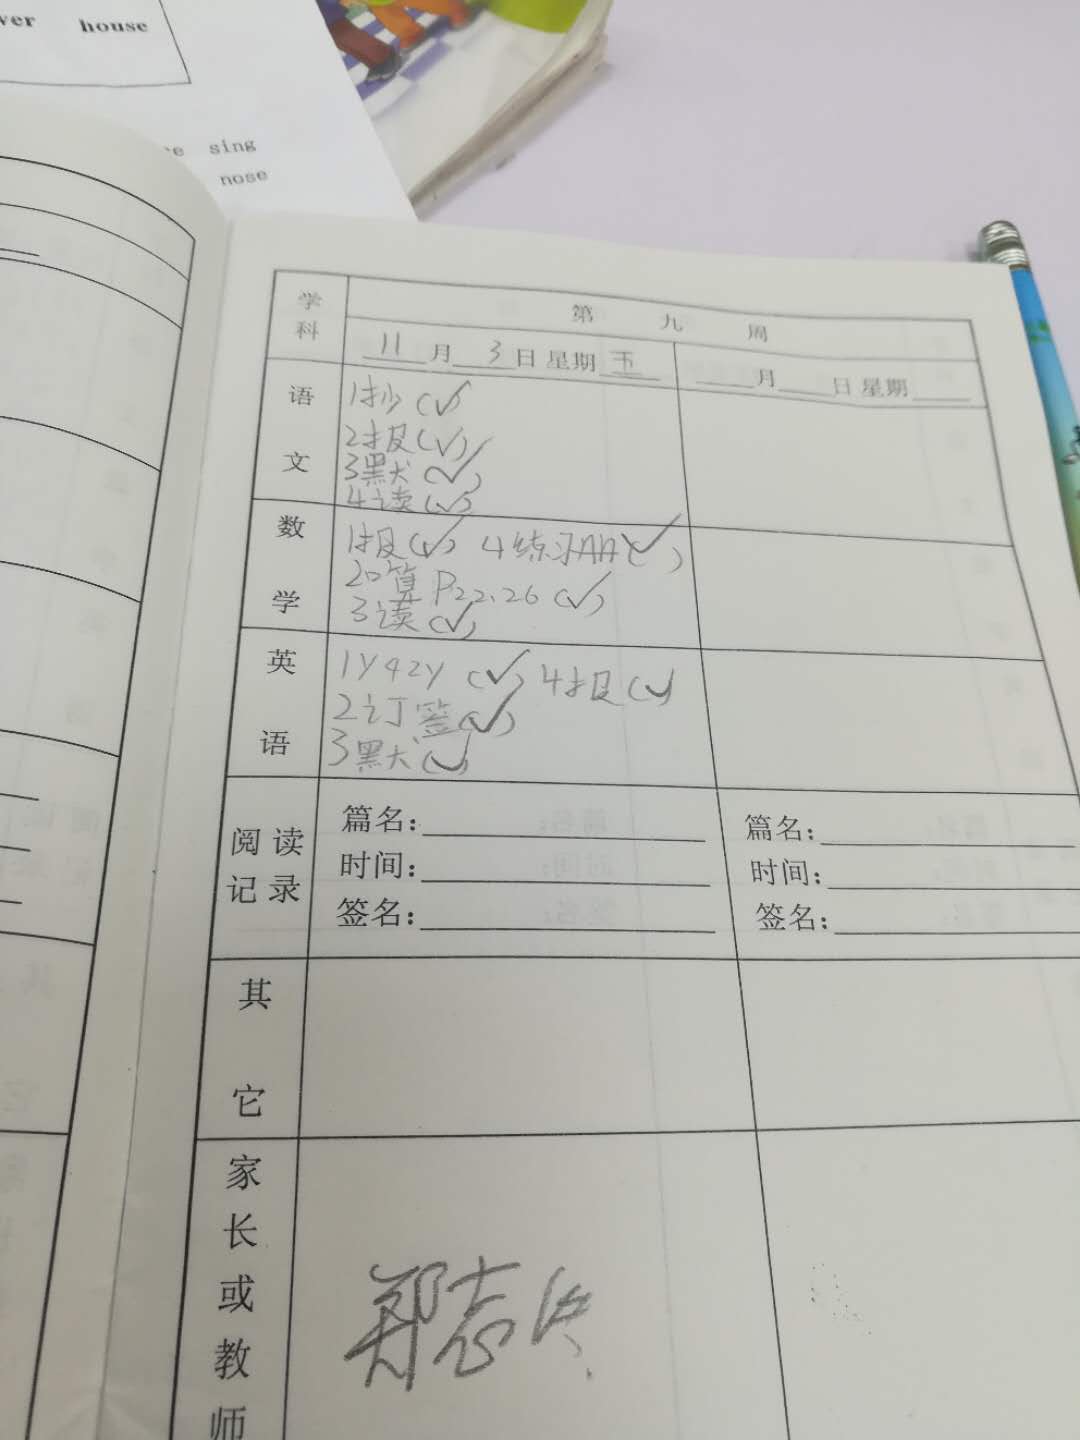 ver house
sing
nose
学科
第九周
11月3日 星期五
月 日 星期
语文
1抄(✓)
2报(✓)
3黑犬(✓)
4读(✓)
数学
1报(✓) 4练习AA(✓)
2口算P22.26(✓)
3读(✓)
英语
1y42y(✓) 4报(✓)
2订签(✓)
3黑犬(✓)
阅读记录
篇名: 篇名:
时间: 时间:
签名: 签名:
其它
家长或教师
郑志